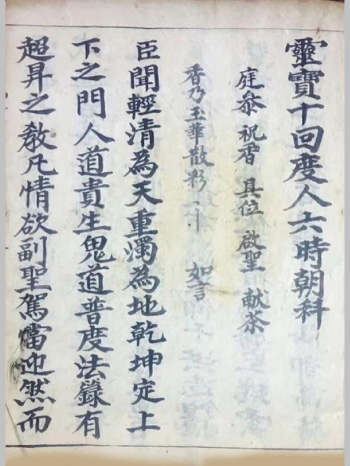 靈寶十回度人六時朝科
庭參 祝香 具位 啟聖 献茶
香乃玉華散彩 如言
臣聞輕清為天重濁為地乾坤定上
下之門人道貴生鬼道普度法籙有
超昇之教凡情欲副聖駕當迎然而